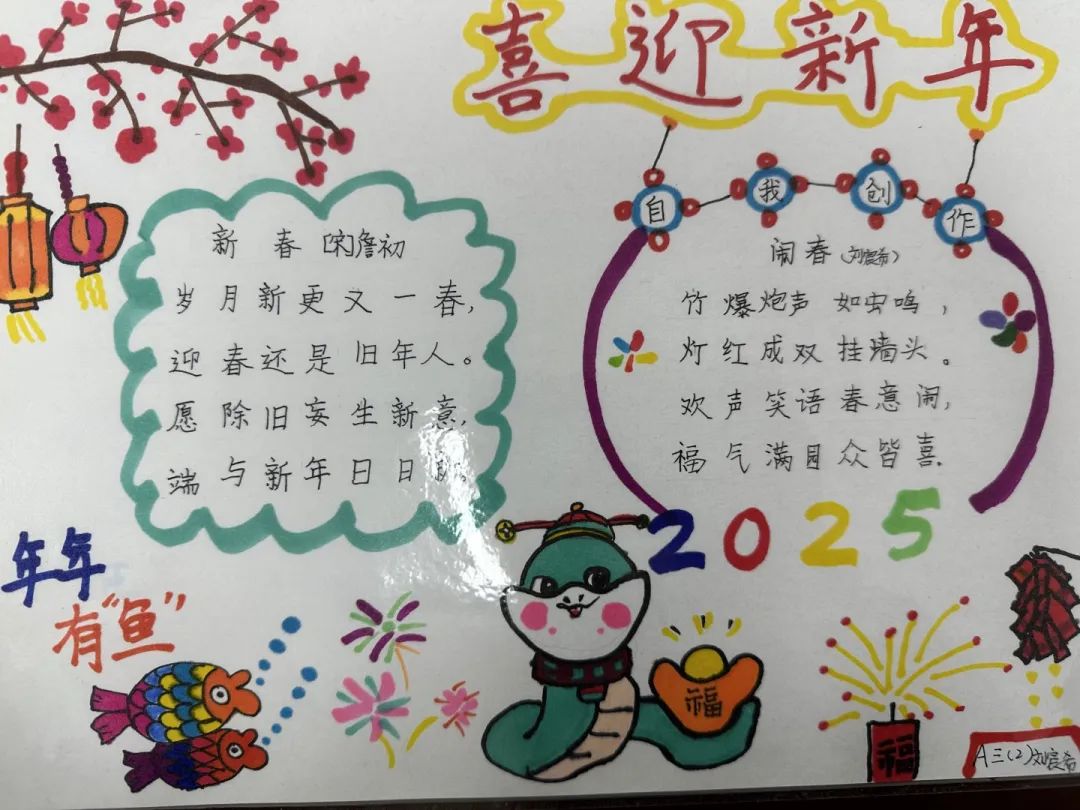 喜迎新年
自我创作
新春 [宋]詹初
岁月新更又一春，
迎春还是旧年人。
愿除旧妄生新意，
端与新年日日
闹春（刘宸希）
竹爆炮声如虫鸣，
灯红成双挂墙头。
欢声笑语春意闹，
福气满园众皆喜.
2025
年年
有“鱼”
福
福
A三(2)刘宸希